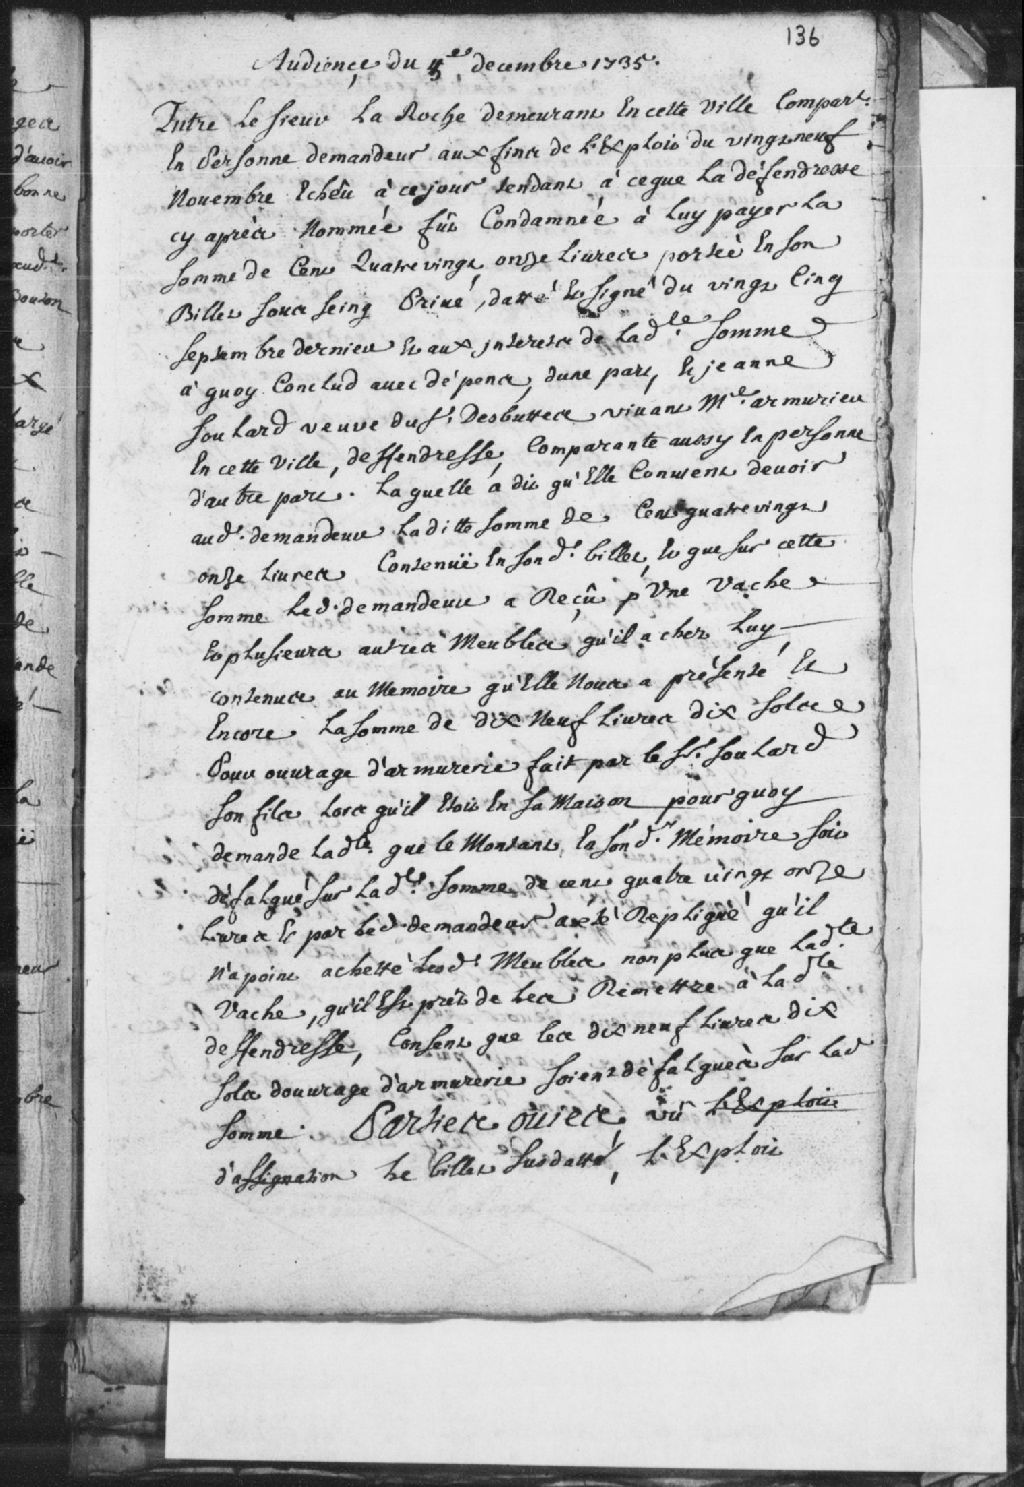 136
Audience du 5e. decembre 1735.
Entre Le sieur La Roche demeurant En cette Ville Compart.
En Personne demandeur aux fins de L'Exploit du vingt neuf
Novembre Echeû à ce jour tendant à ceque La défendresse
cy après Nommée fût Condamnéé à Luy payer La
somme de Cent Quatre vingt onze Livres portéé En son
Billet sous seing Privé, datté Et signé du vingt Cinq
septembre dernier Et aux jnterests de Lad.te somme
à quoy Conclud avec dépens, dune part, Et jeanne
Soulard veuve du S.r Desbuttes vivant M.e armurier
En cette Ville, deffendresse, Comparante aussy En personne
d'autre part. Laquelle a dit qu'Elle Convient devoir
aud. demandeur Laditte somme de Cent quatre vingt
onze Livres Contenuë En sond. billet, Et que sur cette
somme Led. demandeur a Reçû p.r Une Vache
Et plusieurs autres Meubles qu'il a chez Luy
contenus au Memoire qu'Elle Nous a présenté Et
Encore La somme de dix Neuf Livres dix sols
Pour ouvrage d'armurerie fait par le S.r Soulard
son fils Lors qu'il Etoit En sa Maison pour quoy
demande Lad.te que le Montant En son d. Mémoire soit
défalqué sur Lad.te somme de cent quatre vingt onze
Livres Et par Led. demandeur a été Repliqué qu'il
N'a point achetté Lesd.s Meubles non plus que Lad.te
Vache, qu'il Est prêt de Les Remettre à Lad.te
deffendresse, Consent que Les dix neuf Livres dix
sols d'ouvrage d'armurerie soient défalqués sur Lad.
somme. Parties ouies vû L'Exploit
d'assignation Le billet susdatté, L'Exploit